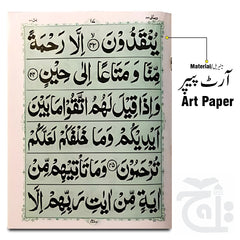 ١٧
يُنْقَذُوْنَ ﴿٤٣﴾ اِلَّا رَحْمَةً
مِّنَّا وَمَتَاعًا اِلٰى حِيْنٍ ﴿٤٤﴾
وَاِذَا قِيْلَ لَهُمُ اتَّقُوْا مَا بَيْنَ
اَيْدِيْكُمْ وَمَا خَلْفَكُمْ لَعَلَّكُمْ
تُرْحَمُوْنَ ﴿٤٥﴾ وَمَا تَاْتِيْهِمْ مِّنْ
اٰيَةٍ مِّنْ اٰيٰتِ رَبِّهِمْ اِلَّا
Material/میٹریل
آرٹ پیپر
Art Paper